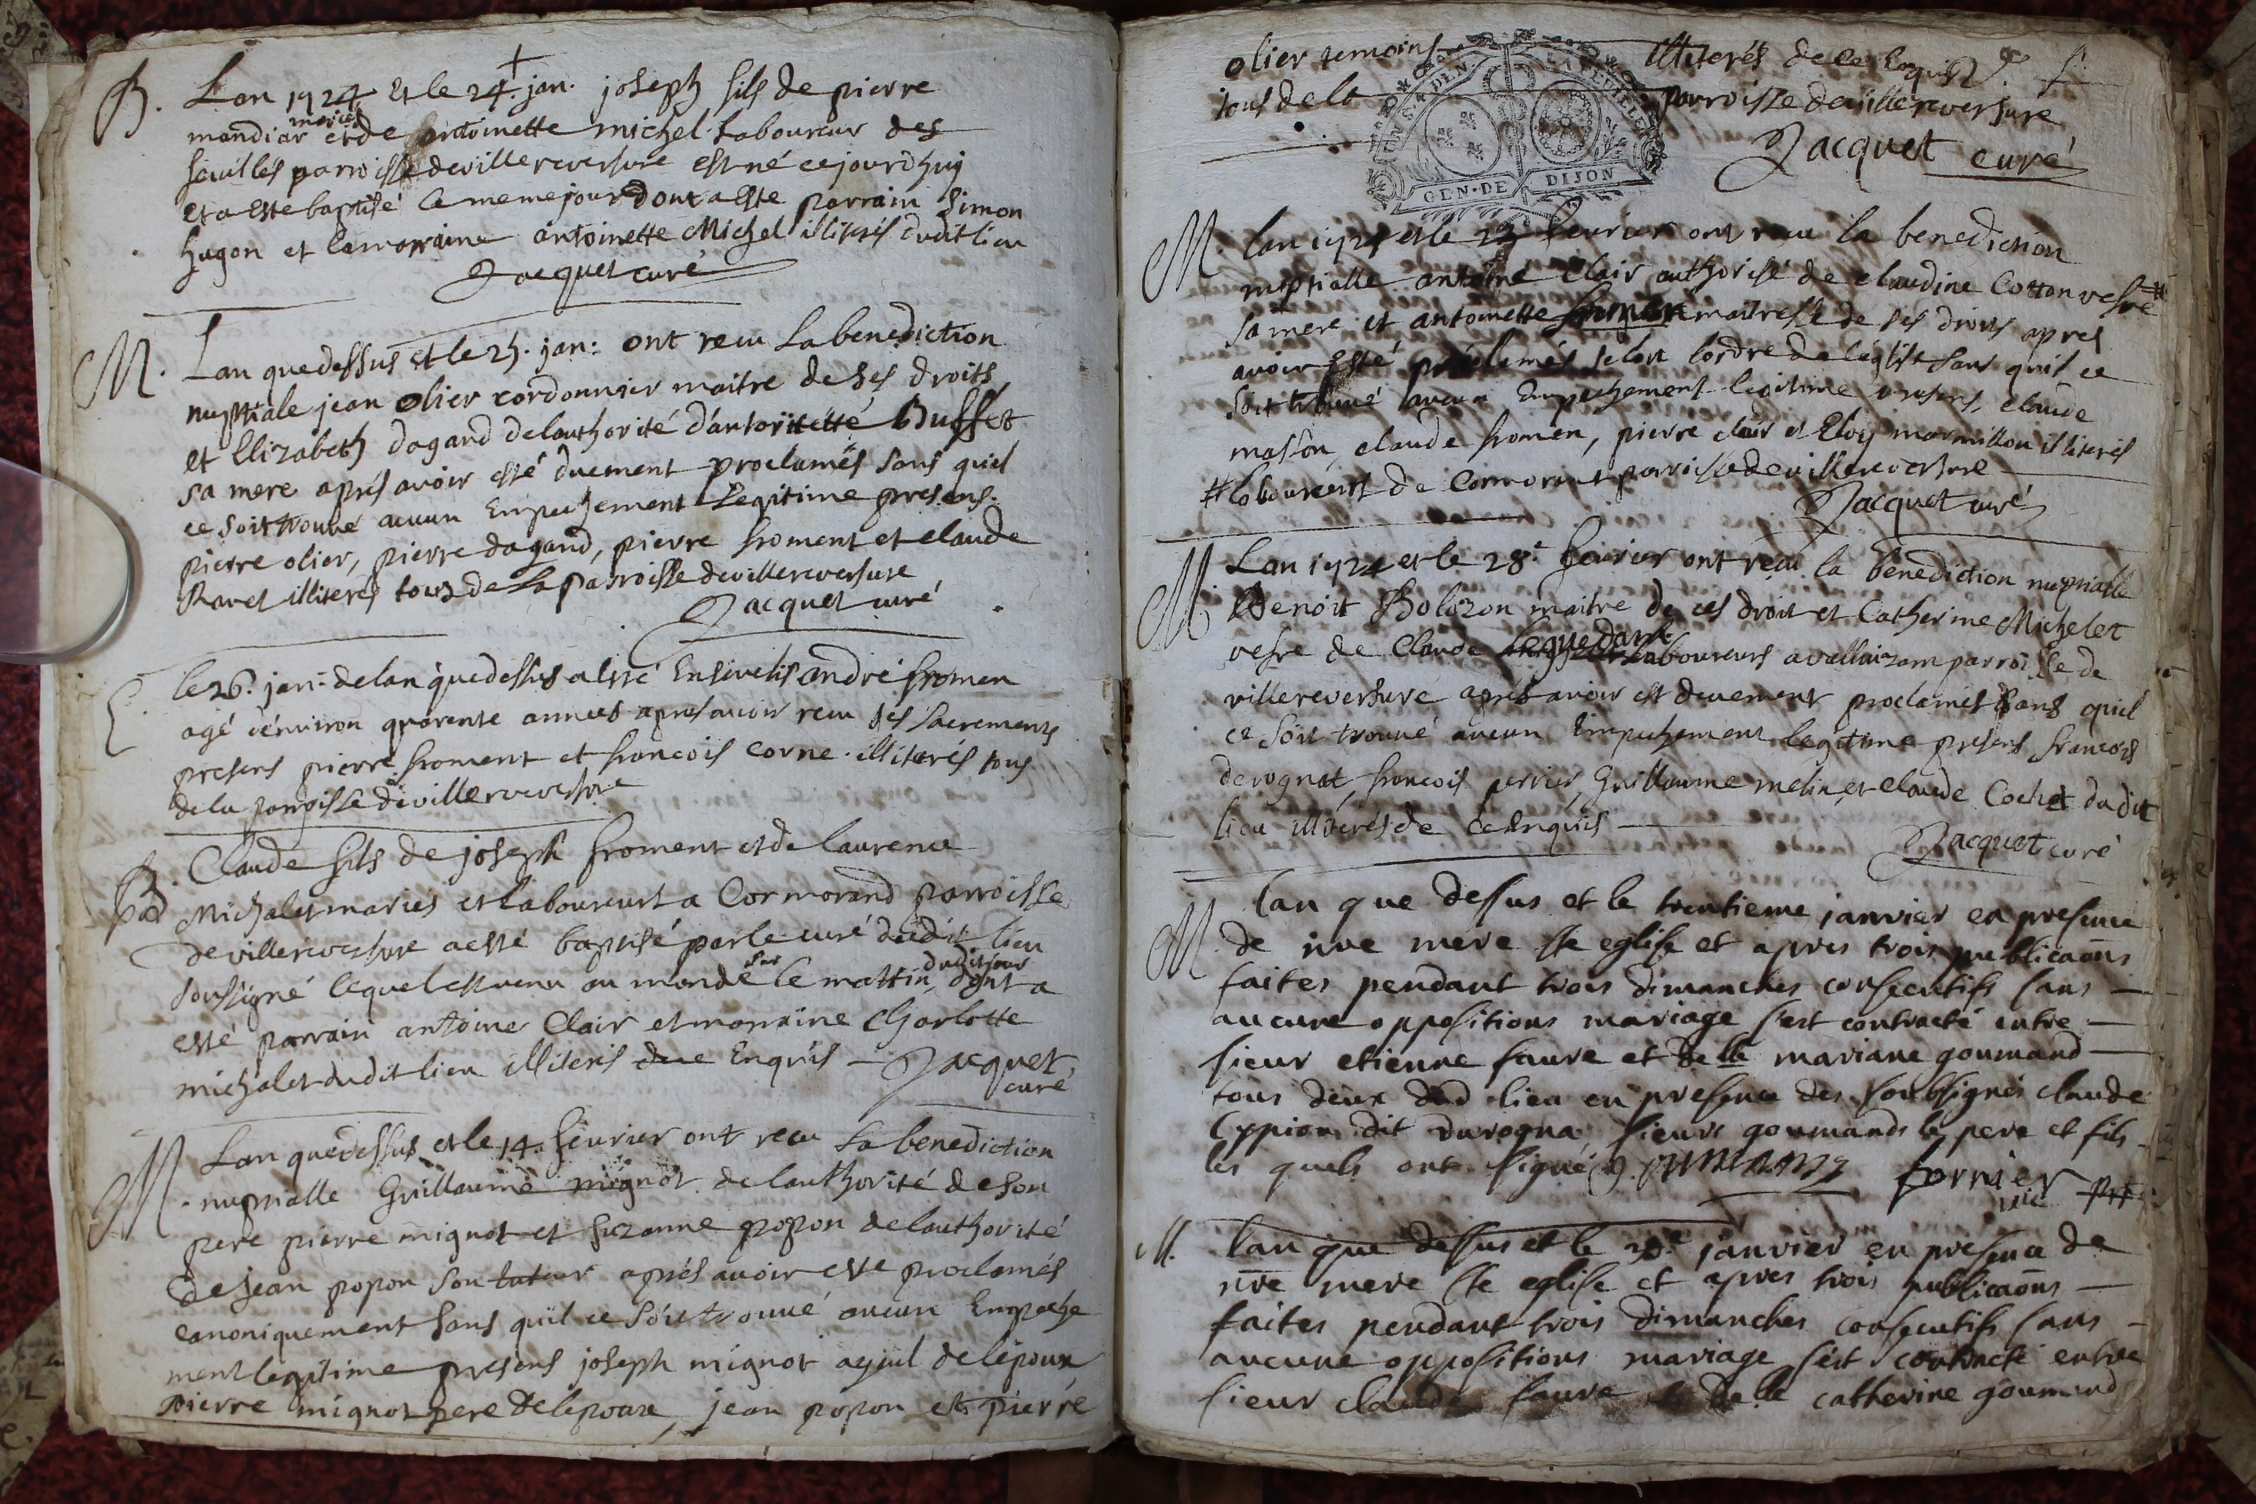 B. Lan 1724 Et le 24. jan. joseph fils de pierre
mandiar mariés et de antoinette michel Laboureur des
feuilles parroisse de villereversure est né ce jourdhuy
et a esté baptisé le meme jour dont a esté parrain Simon
hugon et la marraine antoinette Michel illiterés dudit lieu
Jacquet curé
M. Lan que dessus et le 25. jan: ont receu La benediction
nuptiale jean olier cordonnier maitre de ses droits
et Elizabeth dagand de lauthorité dantoinette Buffet
sa mere aprés avoir esté duement proclamés sans quil
ce soit trouvé aucun Empechement Legitime presens.
pierre olier, pierre dagand, pierre froment et claude
Ravet illiterés tous de La parroisse de villereversure
Jacquet curé
E. le 26. jan: de lan que dessus a esté Enseveli andré fromen
agé d'environ quarente années apres avoir receu ses sacrements
presens pierre froment et francois corne illiterés tous
de la parroisse de villereversure
B. Claude fils de joseph froment et de laurence
Michalet mariés et laboureurs a Cormorand parroisse
de villereversure a esté baptisé par le curé dudit lieu
soussigné lequel est venu au monde sur le mattin dudit jour dont a
esté parrain antoine Clair et marraine Charlotte
michalet dudit lieu illiterés due Enquis Jacquet
curé
M. Lan que dessus et le 14. fevrier ont receu La benediction
nuptialle Guillaume mignot de lauthorité de son
pere pierre mignot et suzanne popon de lauthorité
de jean popon son tuteur aprés avoir este proclamés
canoniquement sans quil ce soit trouvé aucun Empeche
ment legitime presens joseph mignot ayeul de lepoux
pierre mignot pere de lepoux, jean popon et pierre
olier temoins illiterés de ce Enquis
tous de la parroisse de villereversure
GEN·DE DIJON
Jacquet curé
M. lan 1724 et le 23 fevrier ont receu la benediction
nuptialle antoine Clair authorisé de claudine Cotton vefve #
sa mere et antoinette maitresse de ses droits apres
avoir esté proclamés selon l'ordre de l'eglise sans quil ce
soit trouvé aucun Empechement legitime presens, claude
masson, claude fromen, pierre clair et Eloy marmillou illiterés
# laboureurs de Cormorant parroisse de villereversure
Jacquet curé
M. Lan 1724 et le 28e fevrier ont receu la benediction nuptialle
Benoit Bolozon maitre de ces droit et Catherine Michelet
vefve de Claude laboureurs a parroisse de
villereversure aprés avoir est duement proclamés sans quil
ce soit trouvé aucun Empechement legitime presens francois
derognat, francois perrier, Guillaume melin, et claude Cochet dudit
lieu illiterés de ce enquis
Jacquet curé
M. lan que dessus et le trentieme janvier en presence
de nre mere ste eglise et apres trois publicaõns
faites pendant trois dimanches consecutifs sans
aucune oppositions mariage s'est contracté entre
sieur etienne faure et delle mariane goumand
tous deux dud lieu en presence des soubsignés claude
dit durogna, sieurs goumands le pere et fils
les quels ont signé
M. lan que dessus et le janvier en presence de
nre mere ste eglise et apres trois publicaõns
faites pendant trois dimanches consecutifs sans
aucune oppositions mariage s'est contracté entre
sieur claude faure et delle catherine goumand